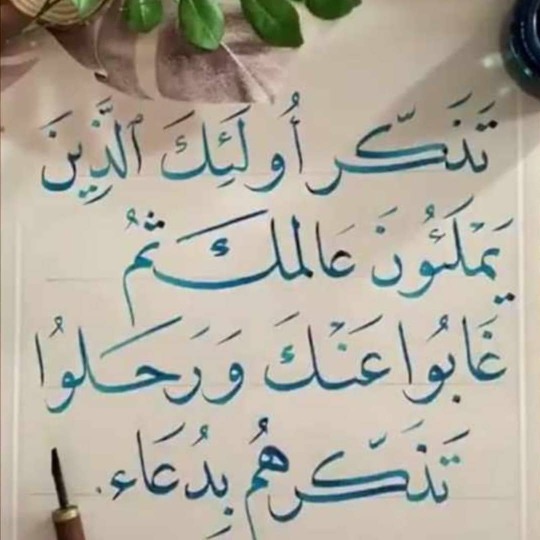 تَذَكّر أُولَئِكَ الَّذِينَ
يَمْلَئُونَ عَالمكَ ثمُ
غَابُوا عَنْكَ وَرَحَلوُا
تَذَكّرهُم بِدُعَاء.